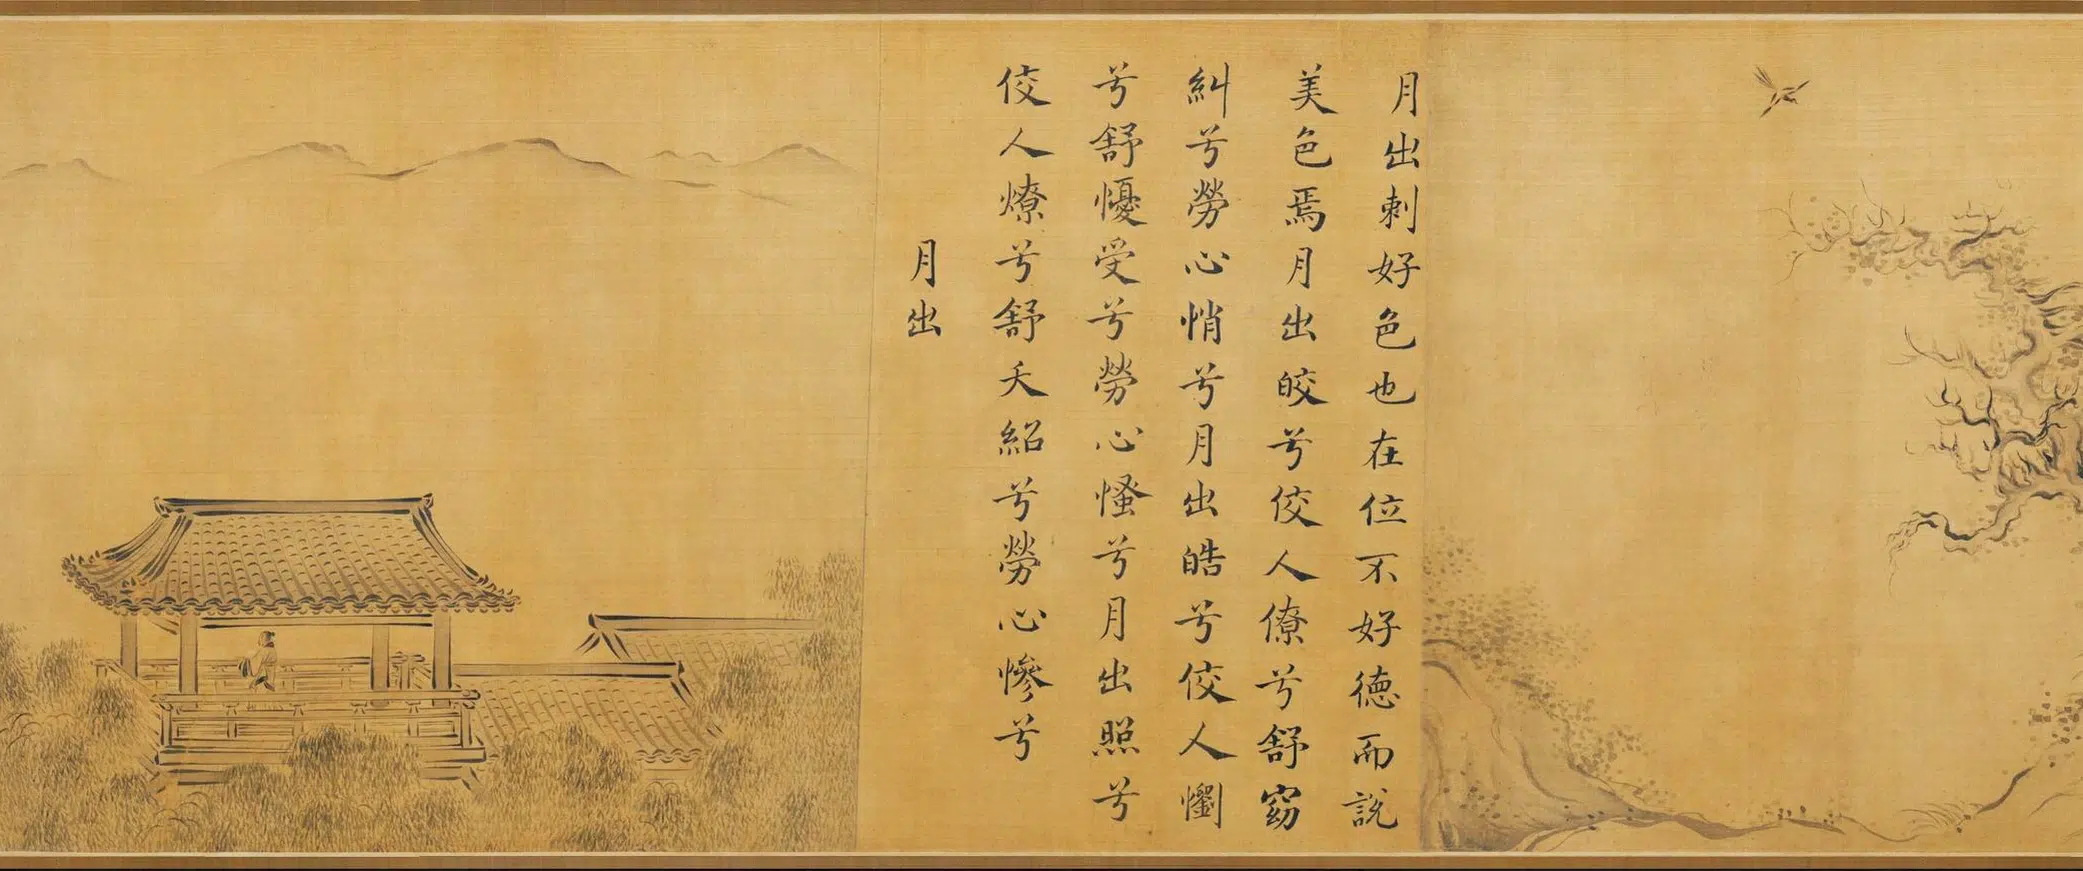 月出刺好色也在位不好德而說
美色焉月出皎兮佼人僚兮舒窈
糾兮勞心悄兮月出皓兮佼人懰
兮舒懮受兮勞心慅兮月出照兮
佼人燎兮舒夭紹兮勞心慘兮
月出